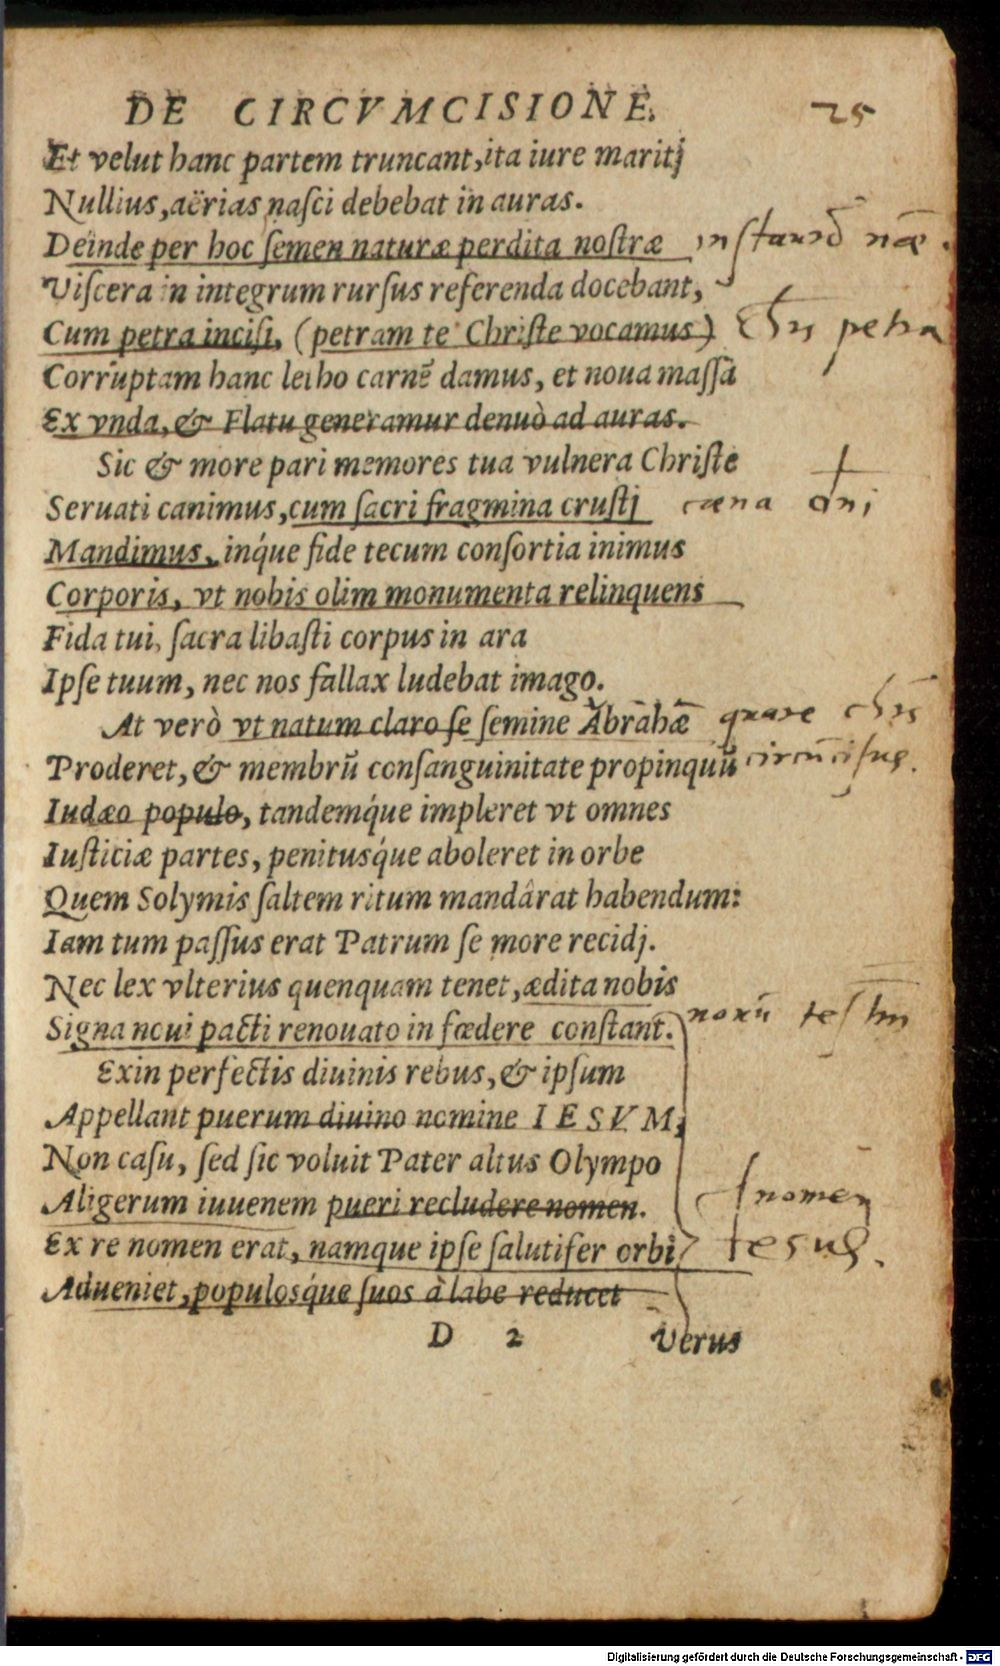 DE CIRCVMCISIONE. 25
Et velut hanc partem truncant, ita iure maritj
Nullius, aërias nasci debebat in auras.
Deinde per hoc ſemen naturæ perdita noſtræ
Viſcera in integrum rurſus referenda docebant,
Cum petra inciſi, (petram te Chriſte vocamus) petra
Corruptam hanc letho carnē damus, et noua maſſā
Ex vnda, & Flatu generamur denuò ad auras.
Sic & more pari memores tua vulnera Chriſte
Seruati canimus, cum ſacri fragmina cruſtj cæna
Mandimus, inq́ue fide tecum conſortia inimus
Corporis, vt nobis olim monumenta relinquens
Fida tui, ſacra libaſti corpus in ara
Ipſe tuum, nec nos fallax ludebat imago.
At verò vt natum claro ſe ſemine Abrahæ quare
Proderet, & membrū conſanguinitate propinquū circūciſus.
Iudæo populo, tandemq́ue impleret vt omnes
Iuſticiæ partes, penitusq́ue aboleret in orbe
Quem Solymis ſaltem ritum mandârat habendum:
Iam tum paſſus erat Patrum ſe more recidj.
Nec lex vlterius quenquam tenet, ædita nobis
Signa noui pacti renouato in fœdere conſtant.
Exin perfectis diuinis rebus, & ipſum
Appellant puerum diuino nomine IESVM,
Non caſu, ſed ſic voluit Pater altus Olympo
Aligerum iuuenem pueri recludere nomen. nomen
Ex re nomen erat, namque ipſe ſalutifer orbi Iesus.
Adueniet, populosq́ue ſuos à labe reducet
D 2 Verus
Digitalisierung gefördert durch die Deutsche Forschungsgemeinschaft - DFG